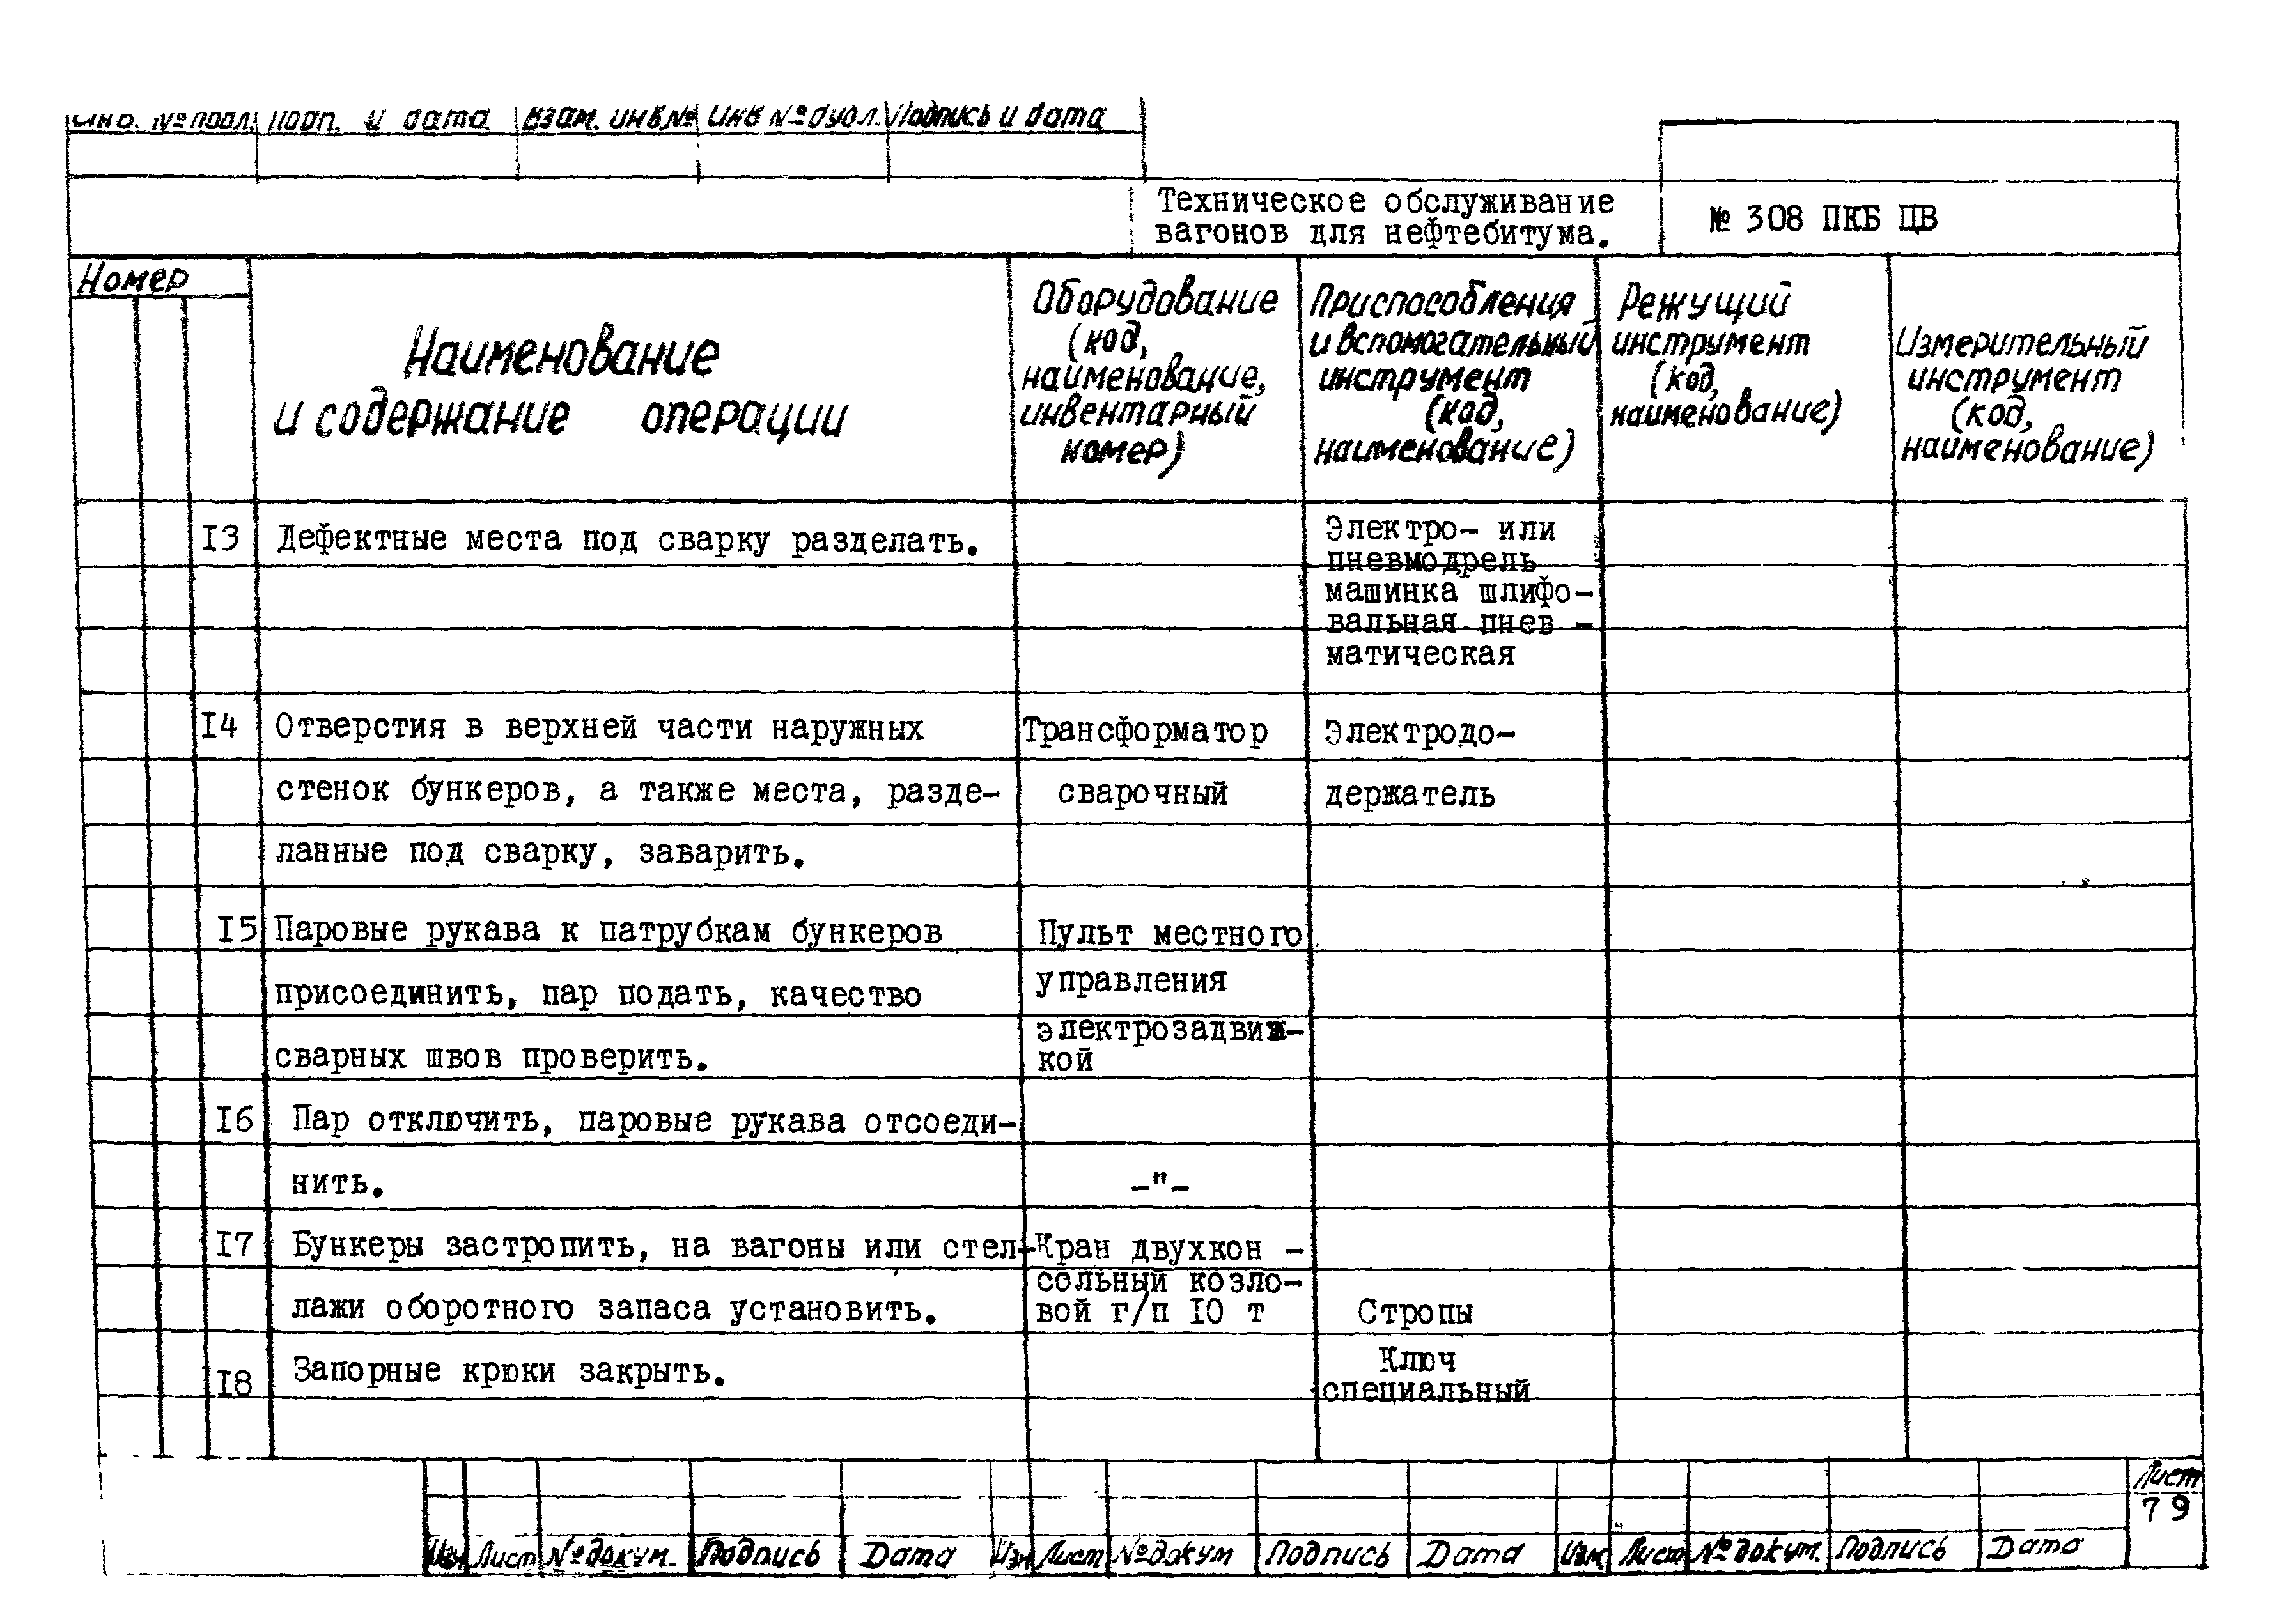 Инв. № подл. Подп. и дата Взам. инв.№ Инв № дубл. Подпись и дата
Техническое обслуживание
вагонов для нефтебитума.
№ 308 ПКБ ЦВ
Номер
Наименование
и содержание операции
Оборудование
(код,
наименование,
инвентарный
номер)
Приспособления
и вспомогательный
инструмент
(код,
наименование)
Режущий
инструмент
(код,
наименование)
Измерительный
инструмент
(код,
наименование)
I3 Дефектные места под сварку разделать.
Электро- или
пневмодрель
машинка шлифо-
вальная пнев -
матическая
I4 Отверстия в верхней части наружных
стенок бункеров, а также места, разде-
ланные под сварку, заварить.
Трансформатор
сварочный
Электродо-
держатель
I5 Паровые рукава к патрубкам бункеров
присоединить, пар подать, качество
сварных швов проверить.
Пульт местного
управления
электрозадвиж-
кой
I6 Пар отключить, паровые рукава отсоеди-
нить.
-"-
I7 Бункеры застропить, на вагоны или стел-
лажи оборотного запаса установить.
Кран двухкон -
сольный козло-
вой г/п IO т
Стропы
I8 Запорные крюки закрыть.
Ключ
специальный
Лист
79
Изм Лист № докум. Подпись Дата Изм Лист № докум Подпись Дата Изм Лист № докум. Подпись Дата